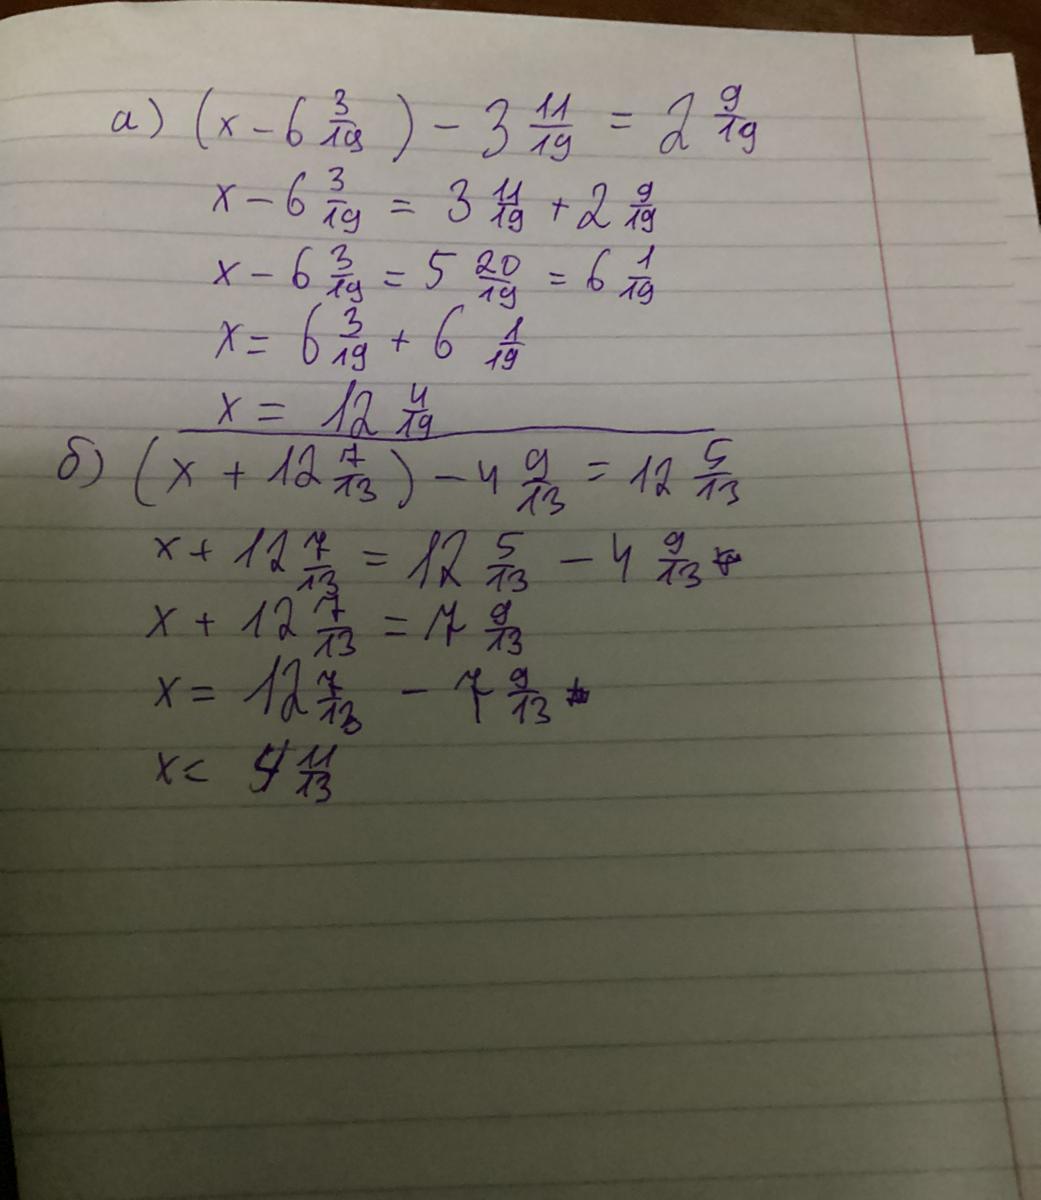 а) (x - 6 3/19) - 3 11/19 = 2 9/19
x - 6 3/19 = 3 11/19 + 2 9/19
x - 6 3/19 = 5 20/19 = 6 1/19
x = 6 3/19 + 6 1/19
x = 12 4/19
б) (x + 12 7/13) - 4 9/13 = 12 5/13
x + 12 7/13 = 12 5/13 - 4 9/13
x + 12 7/13 = 7 9/13
x = 12 7/13 - 7 9/13
x = 4 11/13